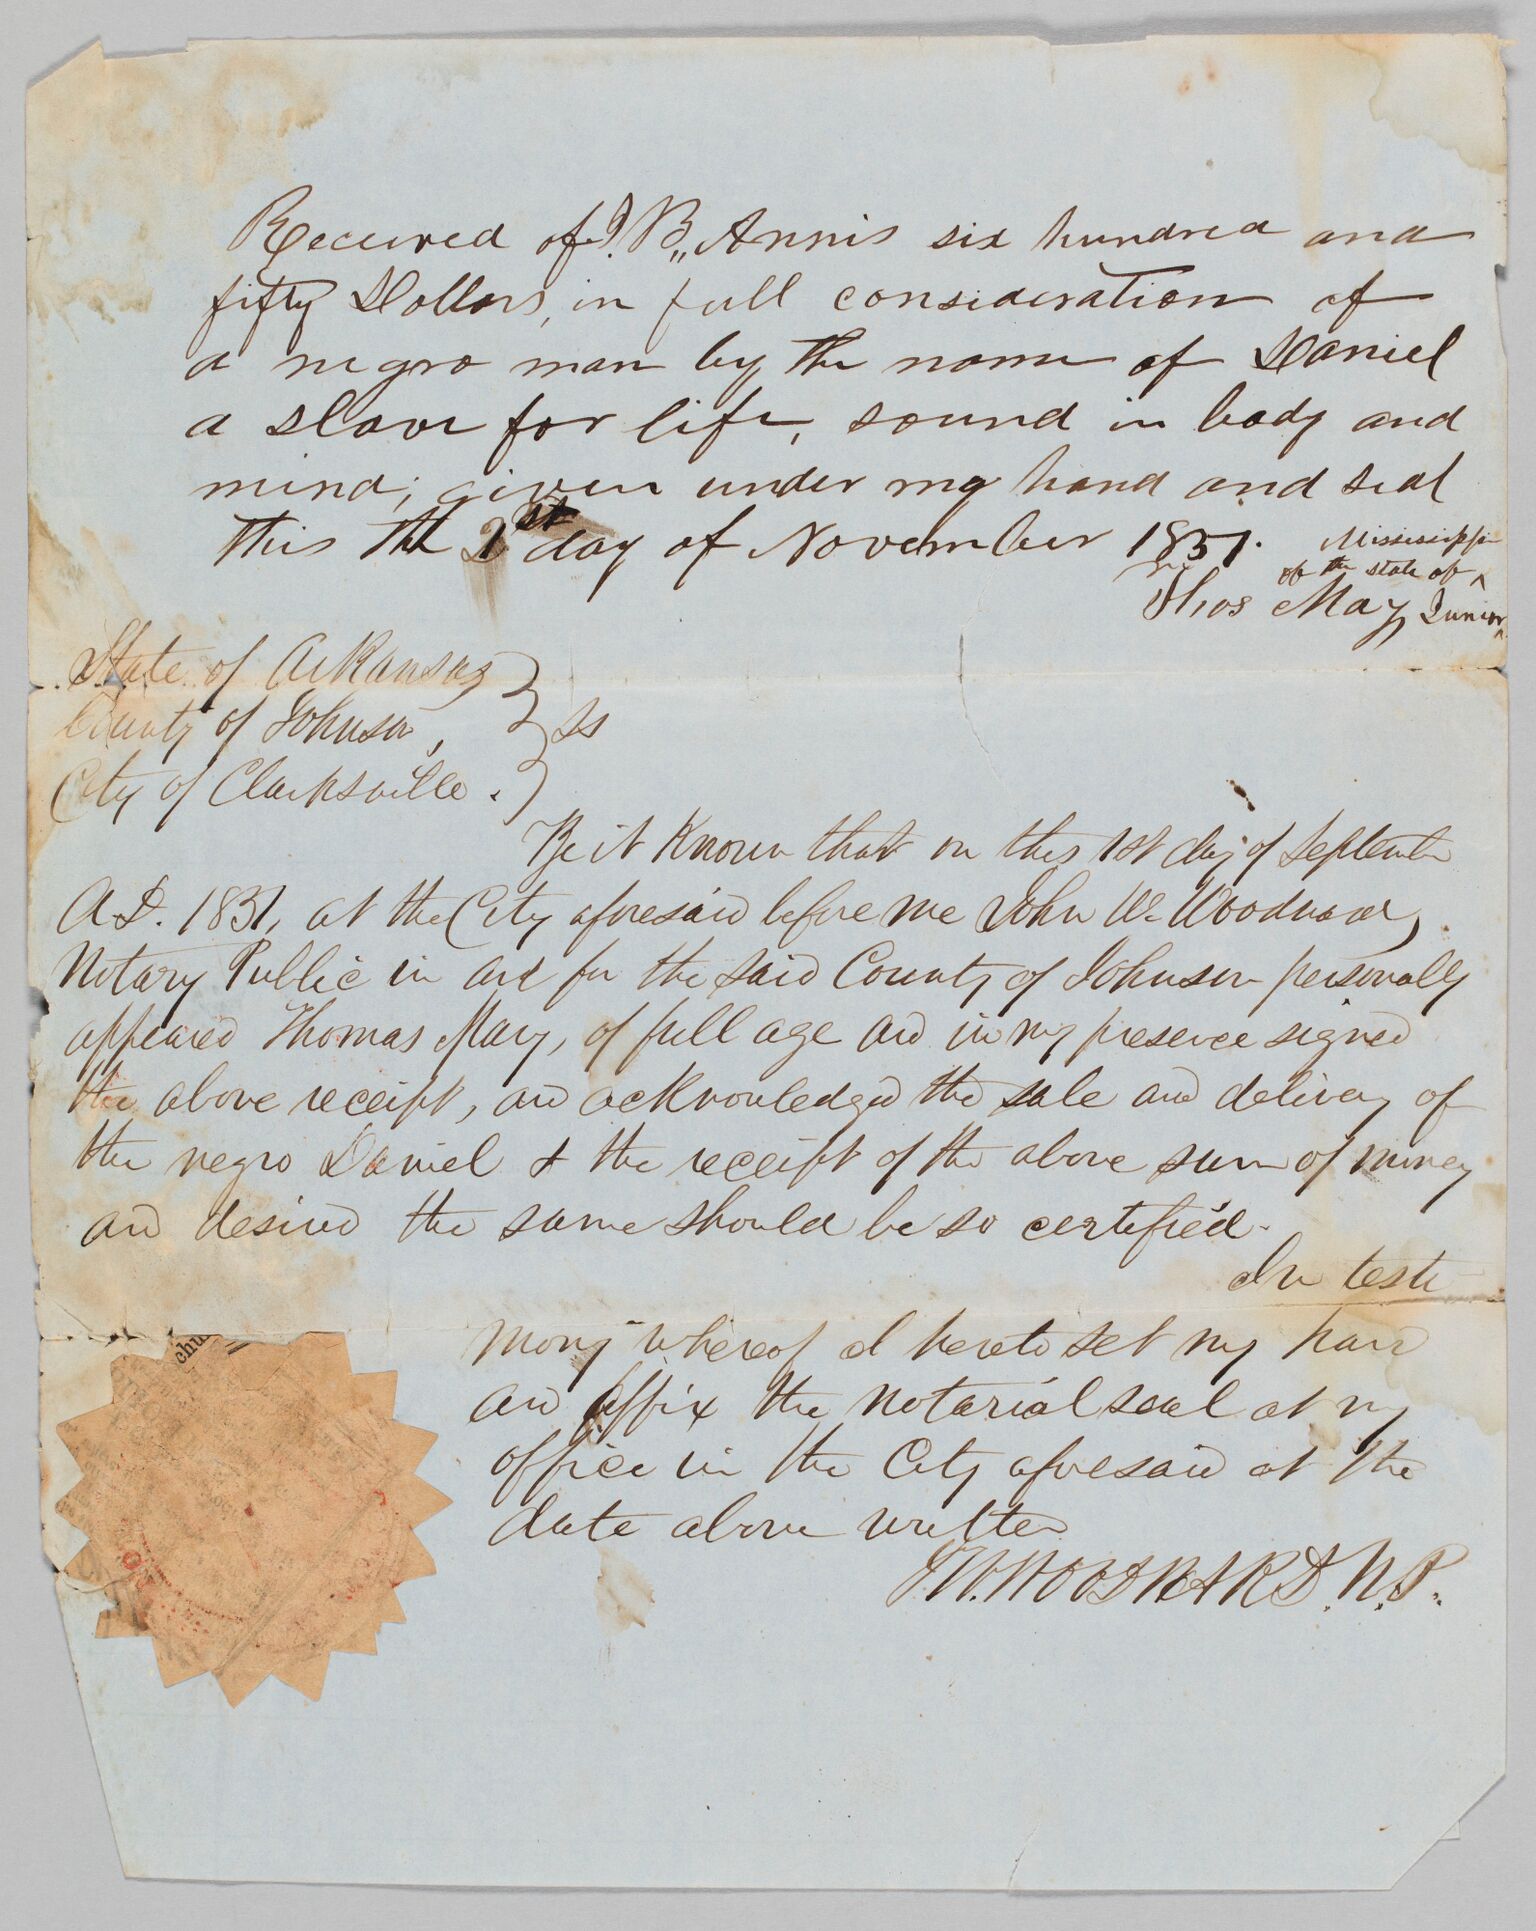 Received of J. B. Annis six hundred and
fifty Dollars, in full consideration of
a negro man by the name of Daniel
a slave for life, sound in body and
mind; given under my hand and seal
this the 1st day of November 1851.
Mississippi
of the state of ^
Thos May Junior
State of Arkansas
County of Johnson,
City of Clarksville. } ss
Be it Known that on this 1st day of September
A.D. 1851, at the City aforesaid before me John W. Woodward,
Notary Public in and for the said County of Johnson personally
appeared Thomas May, of full age and in my presence signed
the above receipt, and acknowledged the sale and delivery of
the negro Daniel & the receipt of the above sum of money
and desired the same should be so certified.
In testi
mony whereof I hereto set my hand
and affix the notarial seal at my
office in the City aforesaid at the
date above written
J. W. WOODWARD. N. P.
chu